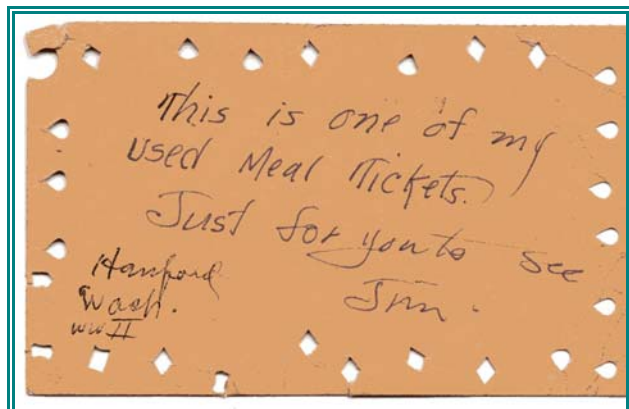 This is one of my
used Meal Tickets.
Just for you to see
Jim.
Hanford
Wash.
WW II